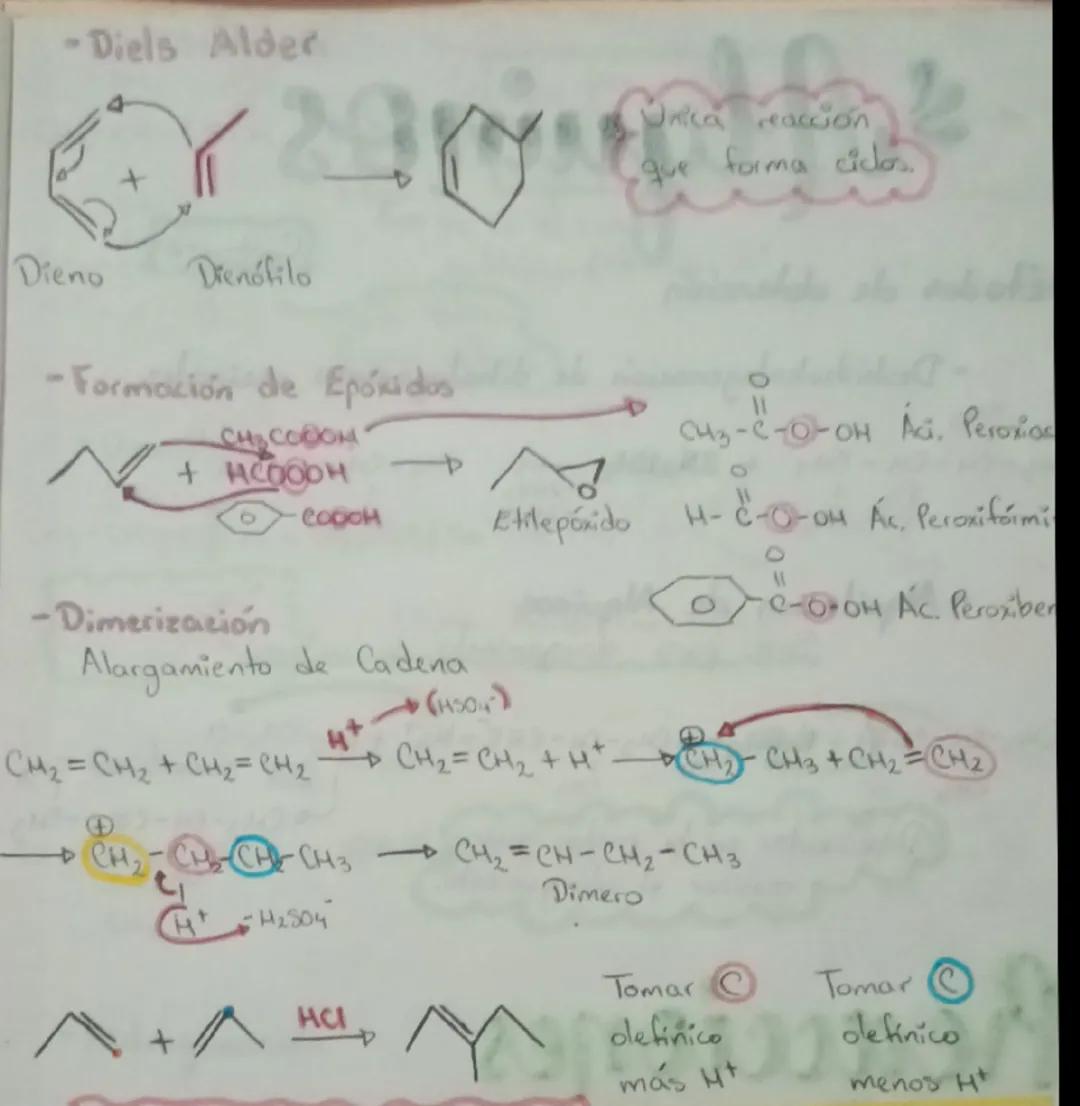 - Diels Alder
+
Única reacción
que forma ciclos.
Dieno Dienófilo
- Formación de Epóxidos
CH3COOOH
+ HCOOOH
COOOH
Etilepóxido
O
||
CH3-C-O-OH Áci.
O
||
H-C-O-OH Ác.
O
||
C-O-OH Ác.
- Dimerización
Alargamiento de Cadena
H+ (HSO4-)
CH2=CH2 + CH2=CH2 → CH2=CH2 + H+ → ⊕CH2-CH3 + CH2=CH2
→ ⊕CH2-CH2-CH2-CH3 → CH2=CH-CH2-CH3
Dímero
H+ -H2SO4-
+ HCl
Tomar C
olefínico
más H+
Tomar C
olefínico
menos H+